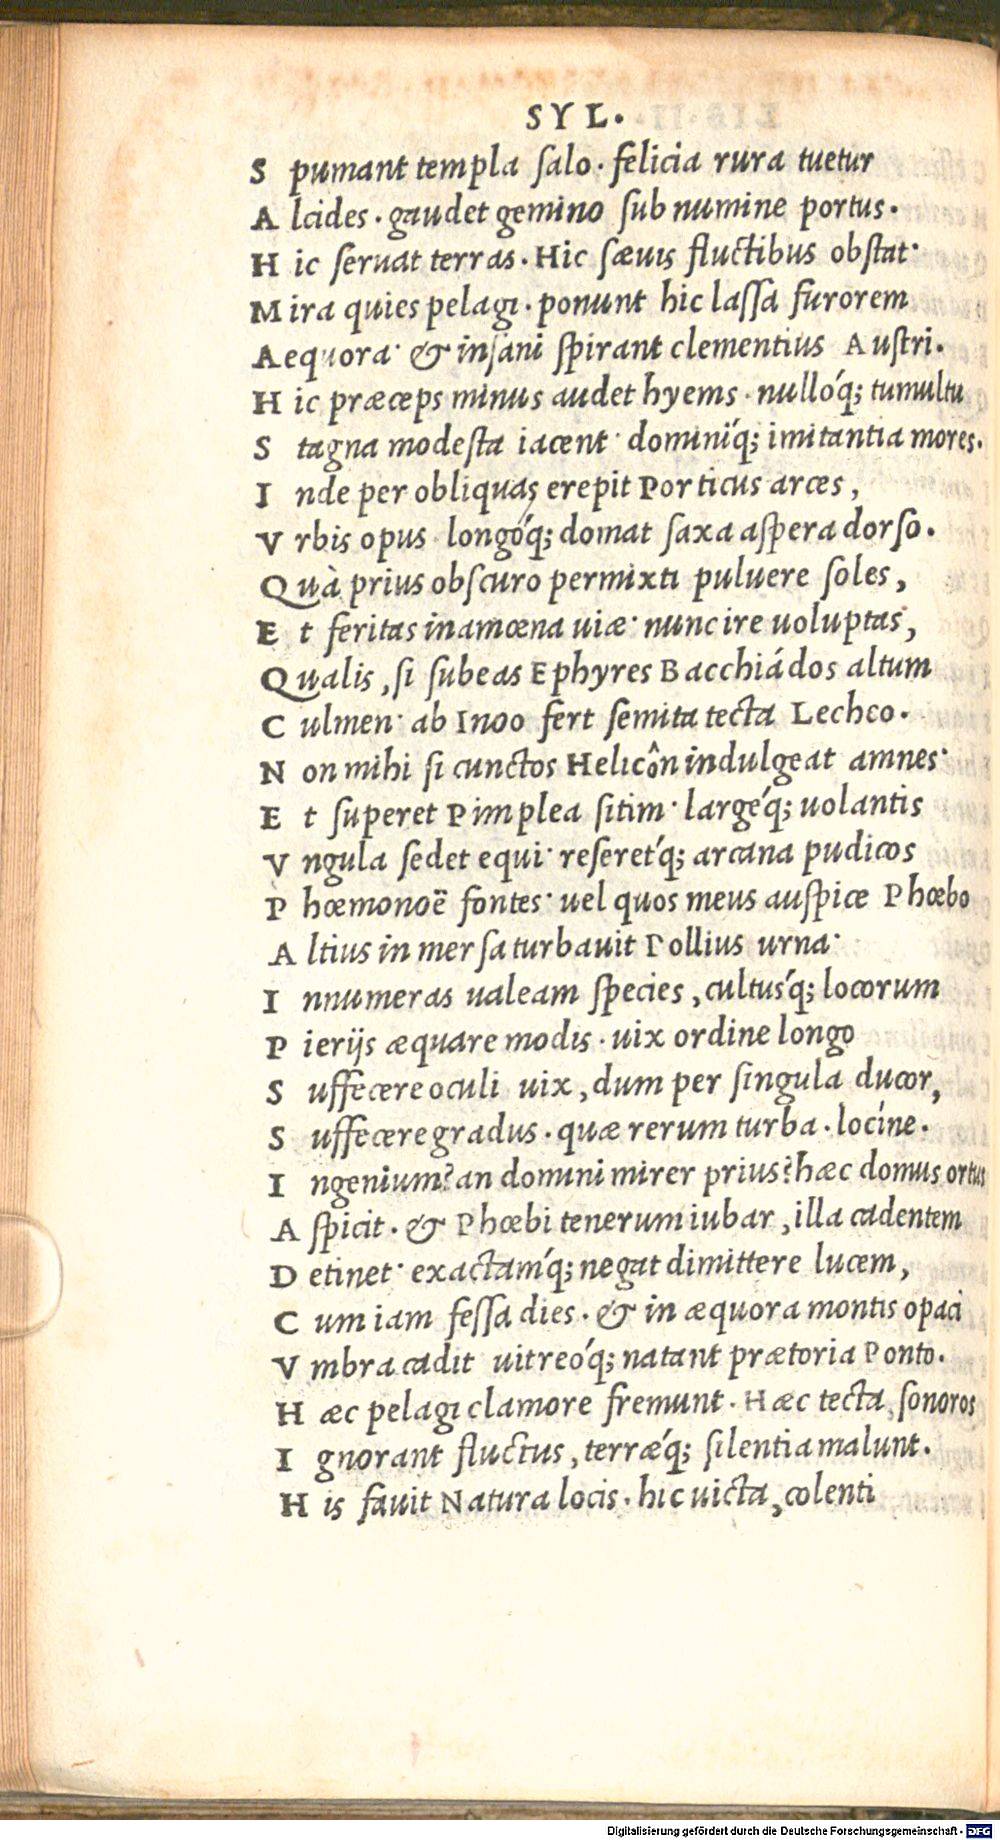 SYL.
S pumant templa salo. felicia rura tuetur
A lcides. gaudet gemino sub numine portus.
H ic seruat terras. Hic sæuis fluctibus obstat·
M ira quies pelagi. ponunt hic lassa furorem
A equora· & insani spirant clementius Austri.
H ic præceps minus audet hyems. nulló́q; tumultu
S tagna modesta iacent· dominíq; imitantia mores.
I nde per obliquas erepit Porticus arces,
V rbis opus longóq; domat saxa aspera dorso.
Q uà prius obscuro permixti puluere soles,
E t feritas inamœna uiæ· nunc ire uoluptas,
Q ualis, si subeas Ephyres Bacchiádos altum
C ulmen· ab Inoo fert semita tecta Lecheo.
N on mihi si cunctos Helicôn indulgeat amnes·
E t superet Pimplea sitim· largéq; uolantis
V ngula sedet equi· reseretq́; arcana pudicos
P hœmonoë fontes· uel quos meus auspice Phœbo
A ltius in mersa turbauit Pollius urna·
I nnumeras ualeam species, cultusq́; locorum
P ierijs æquare modis. uix ordine longo
S uffecere oculi uix, dum per singula ducor,
S uffecere gradus. quæ rerum turba. locíne.
I ngenium? an domini mirer prius? hæc domus ortus
A spicit. & Phœbi tenerum iubar, illa cadentem
D etinet· exactamq́; negat dimittere lucem,
C um iam fessa dies. & in æquora montis opaci
V mbra cadit uitreóq; natant prætoria Ponto.
H æc pelagi clamore fremunt. Hæc tecta, sonoros
I gnorant fluctus, terræq́; silentia malunt.
H is fauit Natura locis. hic uicta, colenti
Digitalisierung gefördert durch die Deutsche Forschungsgemeinschaft - DFG